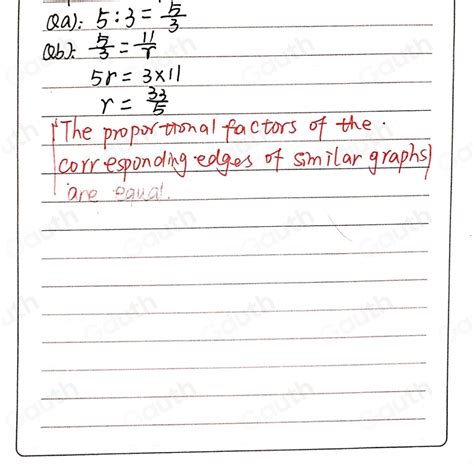 Qa): 5:3 = 5/3
Qb): 5/3 = 11/r
5r = 3×11
r = 33/5
(The proportional factors of the
corresponding edges of similar graphs)
are equal.